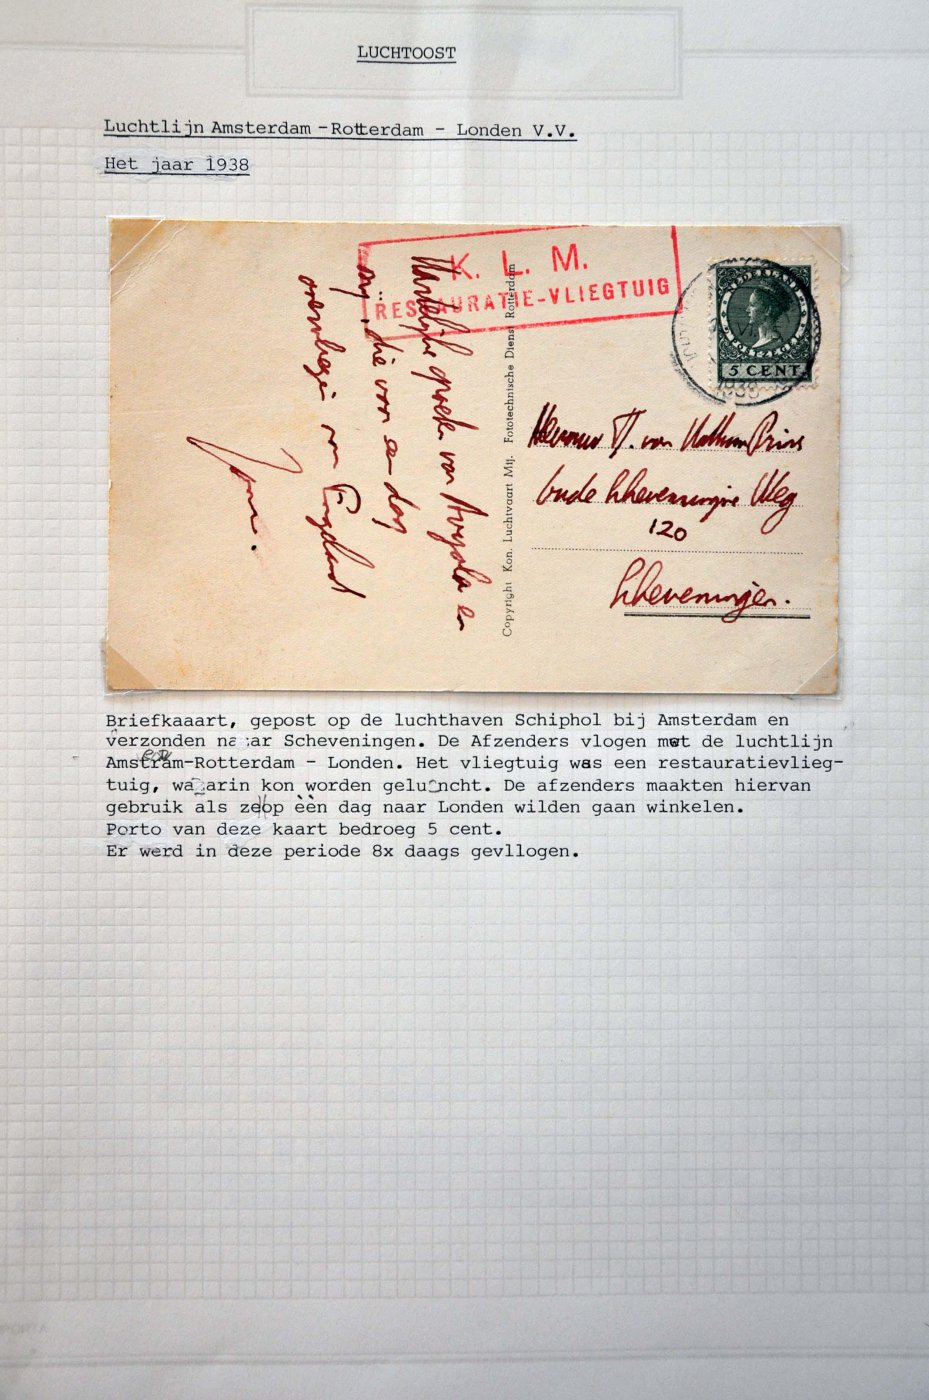 LUCHTOOST
Luchtlijn Amsterdam - Rotterdam - Londen V.V.
Het jaar 1938
K. L. M.
RESTAURATIE-VLIEGTUIG
NEDERLAND
POSTZEGEL
5 CENT
1938
Hartelijke groeten van
en
mij, die voor een dag
overvliegen van Engeland
Copyright Kon. Luchtvaart Mij. Fototechnische Dienst Rotterdam
Mevrouw van Prins
Oude Scheveningse Weg
120
Scheveningen.
Briefkaaart, gepost op de luchthaven Schiphol bij Amsterdam en
verzonden naar Scheveningen. De Afzenders vlogen met de luchtlijn
Amstram-Rotterdam - Londen. Het vliegtuig was een restauratievlieg-
tuig, waarin kon worden geluncht. De afzenders maakten hiervan
gebruik als ze op èèn dag naar Londen wilden gaan winkelen.
Porto van deze kaart bedroeg 5 cent.
Er werd in deze periode 8x daags gevllogen.